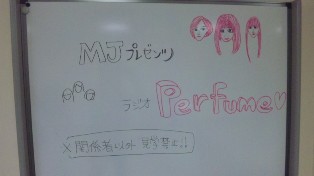 MJプレゼンツ
ラジオ Perfume♡
×関係者以外 見学禁止!!